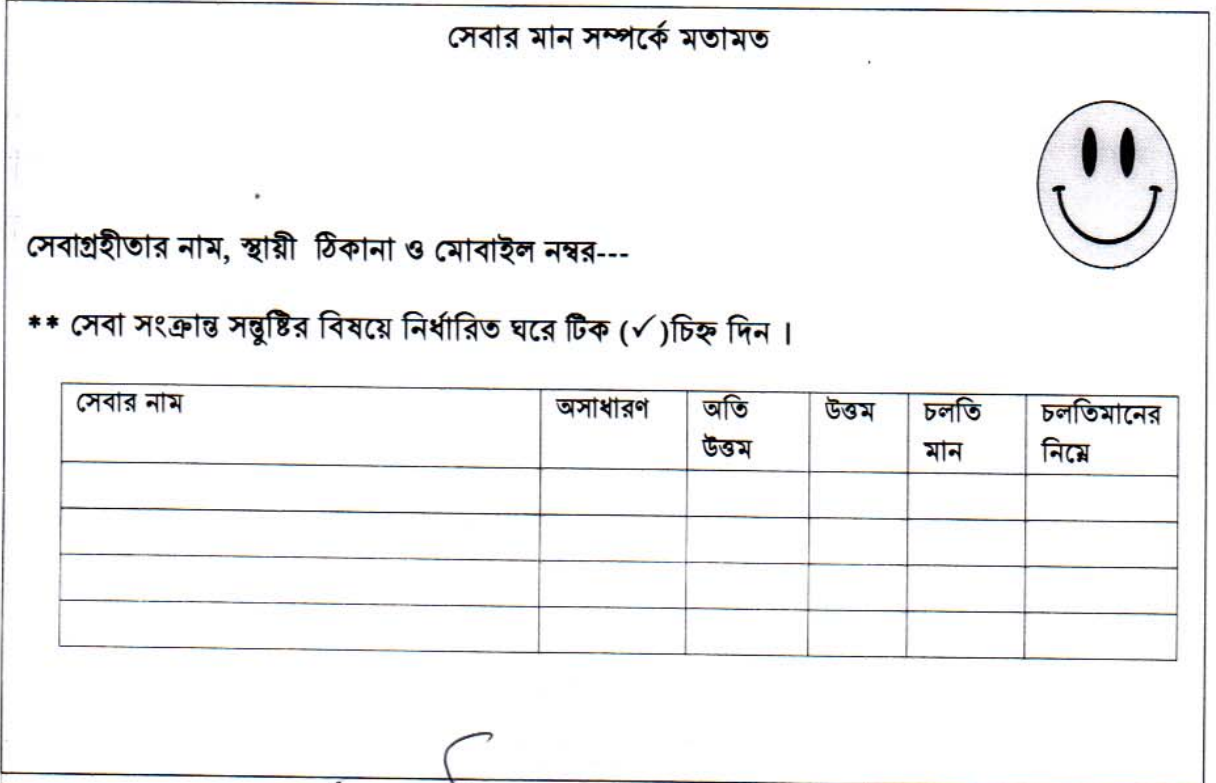 সেবার মান সম্পর্কে মতামত
সেবাগ্রহীতার নাম, স্থায়ী ঠিকানা ও মোবাইল নম্বর---
** সেবা সংক্রান্ত সন্তুষ্টির বিষয়ে নির্ধারিত ঘরে টিক (✓)চিহ্ন দিন ।
সেবার নাম অসাধারণ অতি উত্তম উত্তম চলতি মান চলতিমানের নিম্নে